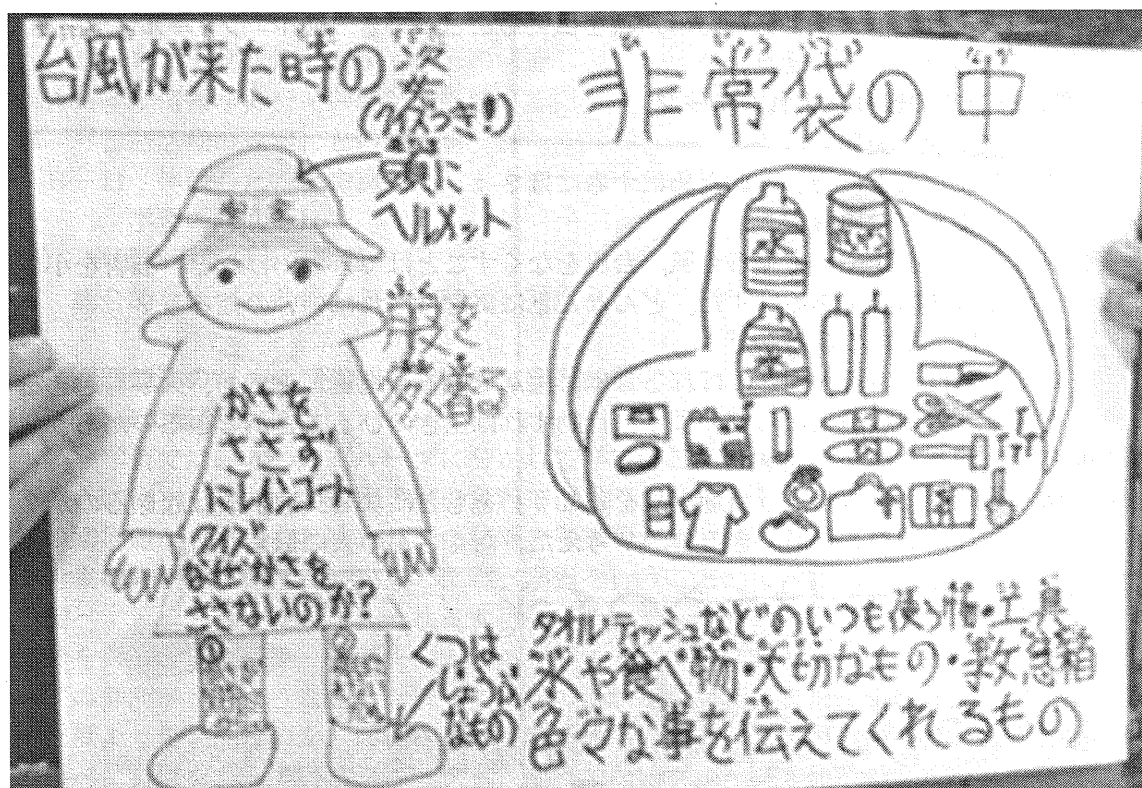 台風が来た時の姿
(クイズつき!)
頭に
ヘルメット
服を
多く着る
かさを
ささず
にレインコート
クイズ
なぜかさを
ささないのか?
くつは
じょうぶ
なもの
非常袋の中
水
タオルティッシュなどのいつも使う物・工具
水や食べ物・大切なもの・救急箱
色々な事を伝えてくれるもの